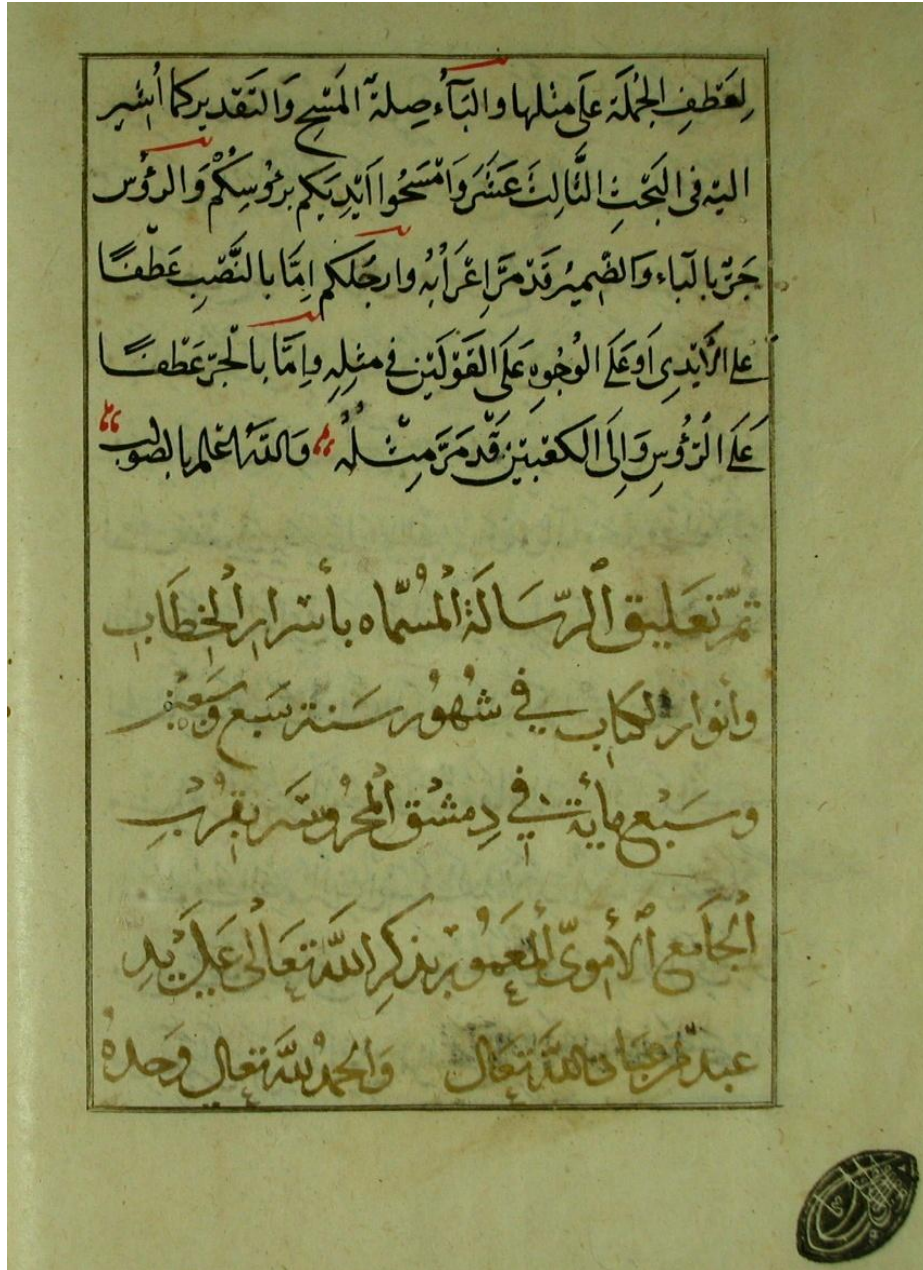 لِعَطْفِ الجُمْلَة عَلَى مثلها والبَآءُ صِلة المَسْحِ وَالتَقدير كما اُشير
اليْه فى البَحْثِ الثَّالِثَ عَشَرَ وَامْسَحُوا اَيْدِيَكم برءُوسِكُمْ وَالرءُوس
جَرّ بالبَاء وَالضَميرُ قَدْ مَرَّ اِعْرَابُهُ وارجلكم اِمَّا بالنَّصْبِ عَطْفًا
عَلَى الاَيْدِى اَوْ عَلَى الوُجُوهِ عَلَى القَوْلَيْن فى مثلِهِ وَاِمَّا بالجرّ عَطْفًا
عَلَى الرُؤُسِ وَاِلَى الكعْبيَن قَدْ مَرَّ مِثْلُهُ وَاللهُ اعْلم بالصَواب
تمّ تعَليق الرّسَالَة المُسمّاه بأسْرارِ الخِطَابِ
وأنوار الكتاب في شهُوُر سَنة سَبع وسَبعين
وسَبْع مائة في دِمشق المحرُوسَة بقُربْ
الجَامع الأموىّ المَعموُر بذكرِ اللهِ تعَالى عَلى يَد
عبد الله تعَالى وَالحمدُ لله تعَالى وَحدهُ